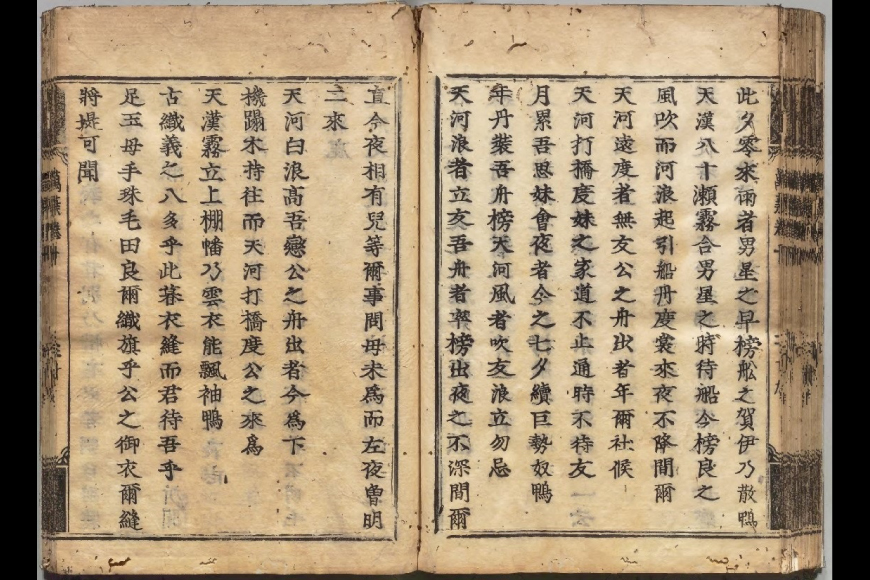 此夕零來雨者男星之早榜舩之賀伊乃散鴨
天漢八十瀬霧合男星之時待船今榜良之
風吹而河浪起引船丹度裳來夜不降間爾
天河遠度者無友公之舟出者年爾社候
天河打橋度妹之家道不止通時不待友
月累吾思妹會夜者今之七夕續巨勢奴鴨
年丹裝吾舟榜天河風者吹友浪立勿忌
天河浪者立友吾舟者率榜出夜之不深間爾
直今夜相有兒等爾事問母未為而左夜曽明
二來
天河白浪高吾戀公之舟出者今為下
機蹋木持往而天河打橋度公之來為
天漢霧立上棚幡乃雲衣能飄袖鴨
古織義之八多乎此暮衣縫而君待吾乎
足玉母手珠毛田良爾織旗乎公之御衣爾縫
將堤可聞